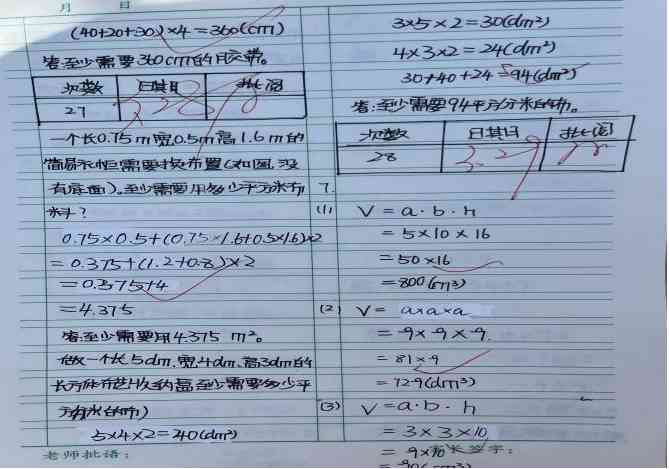 月 日
(40+20+30)×4=360(cm)
答:至少需要360cm的胶带。
次数 日期 批阅
27 3.28
一个长0.75m宽0.5m高1.6m的
简易衣柜需要换布置(如图,没
有底面)。至少需要用多少平方米布
料?
0.75×0.5+(0.75×1.6+0.5×1.6)×2
=0.375+(1.2+0.8)×2
=0.375+4
=4.375
答:至少需要用4.375 m²。
做一个长5dm、宽4dm、高3dm的
长方体布艺收纳箱至少需要多少平
方分米的布
5×4×2=40(dm²)
老师批语:
3×5×2=30(dm²)
4×3×2=24(dm²)
30+40+24=94(dm²)
答:至少需要94平方分米的布。
次数 日期 批阅
28 3.29
7.
(1) V=a·b·h
=5×10×16
=50×16
=800(cm³)
(2) V=a×a×a
=9×9×9
=81×9
=729(dm³)
(3) V=a·b·h
=3×3×10
=9×10
家长签字:
=90(cm³)